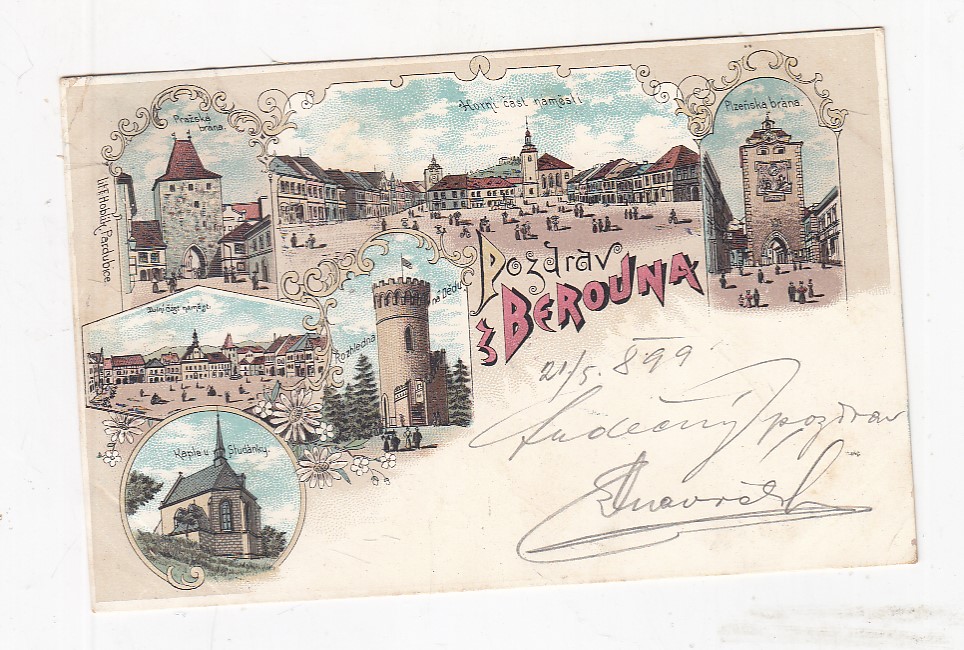 Pražská
brána.
Horní část náměstí
Plzeňská brána.
Pozdrav
z BEROUNA
Rozhledna
na Dědu.
Dolní část náměstí.
Kaple u Studánky.
Pardubice
21/5 899
Srdečný pozdrav